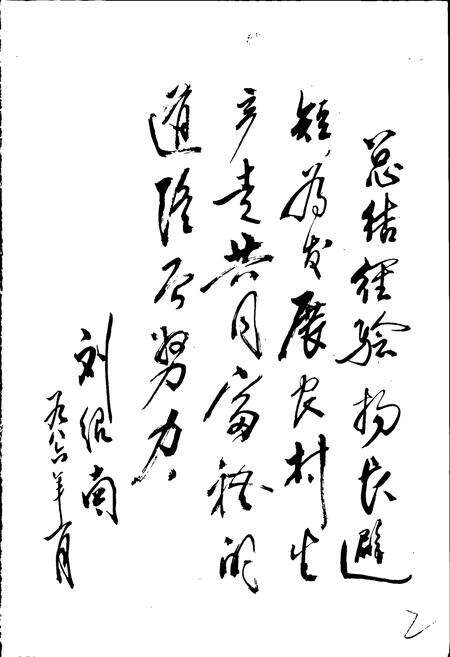 总结经验扬长避
短,为发展农村生
产走共同富裕的
道路而努力.
刘绍南
一九八六年一月